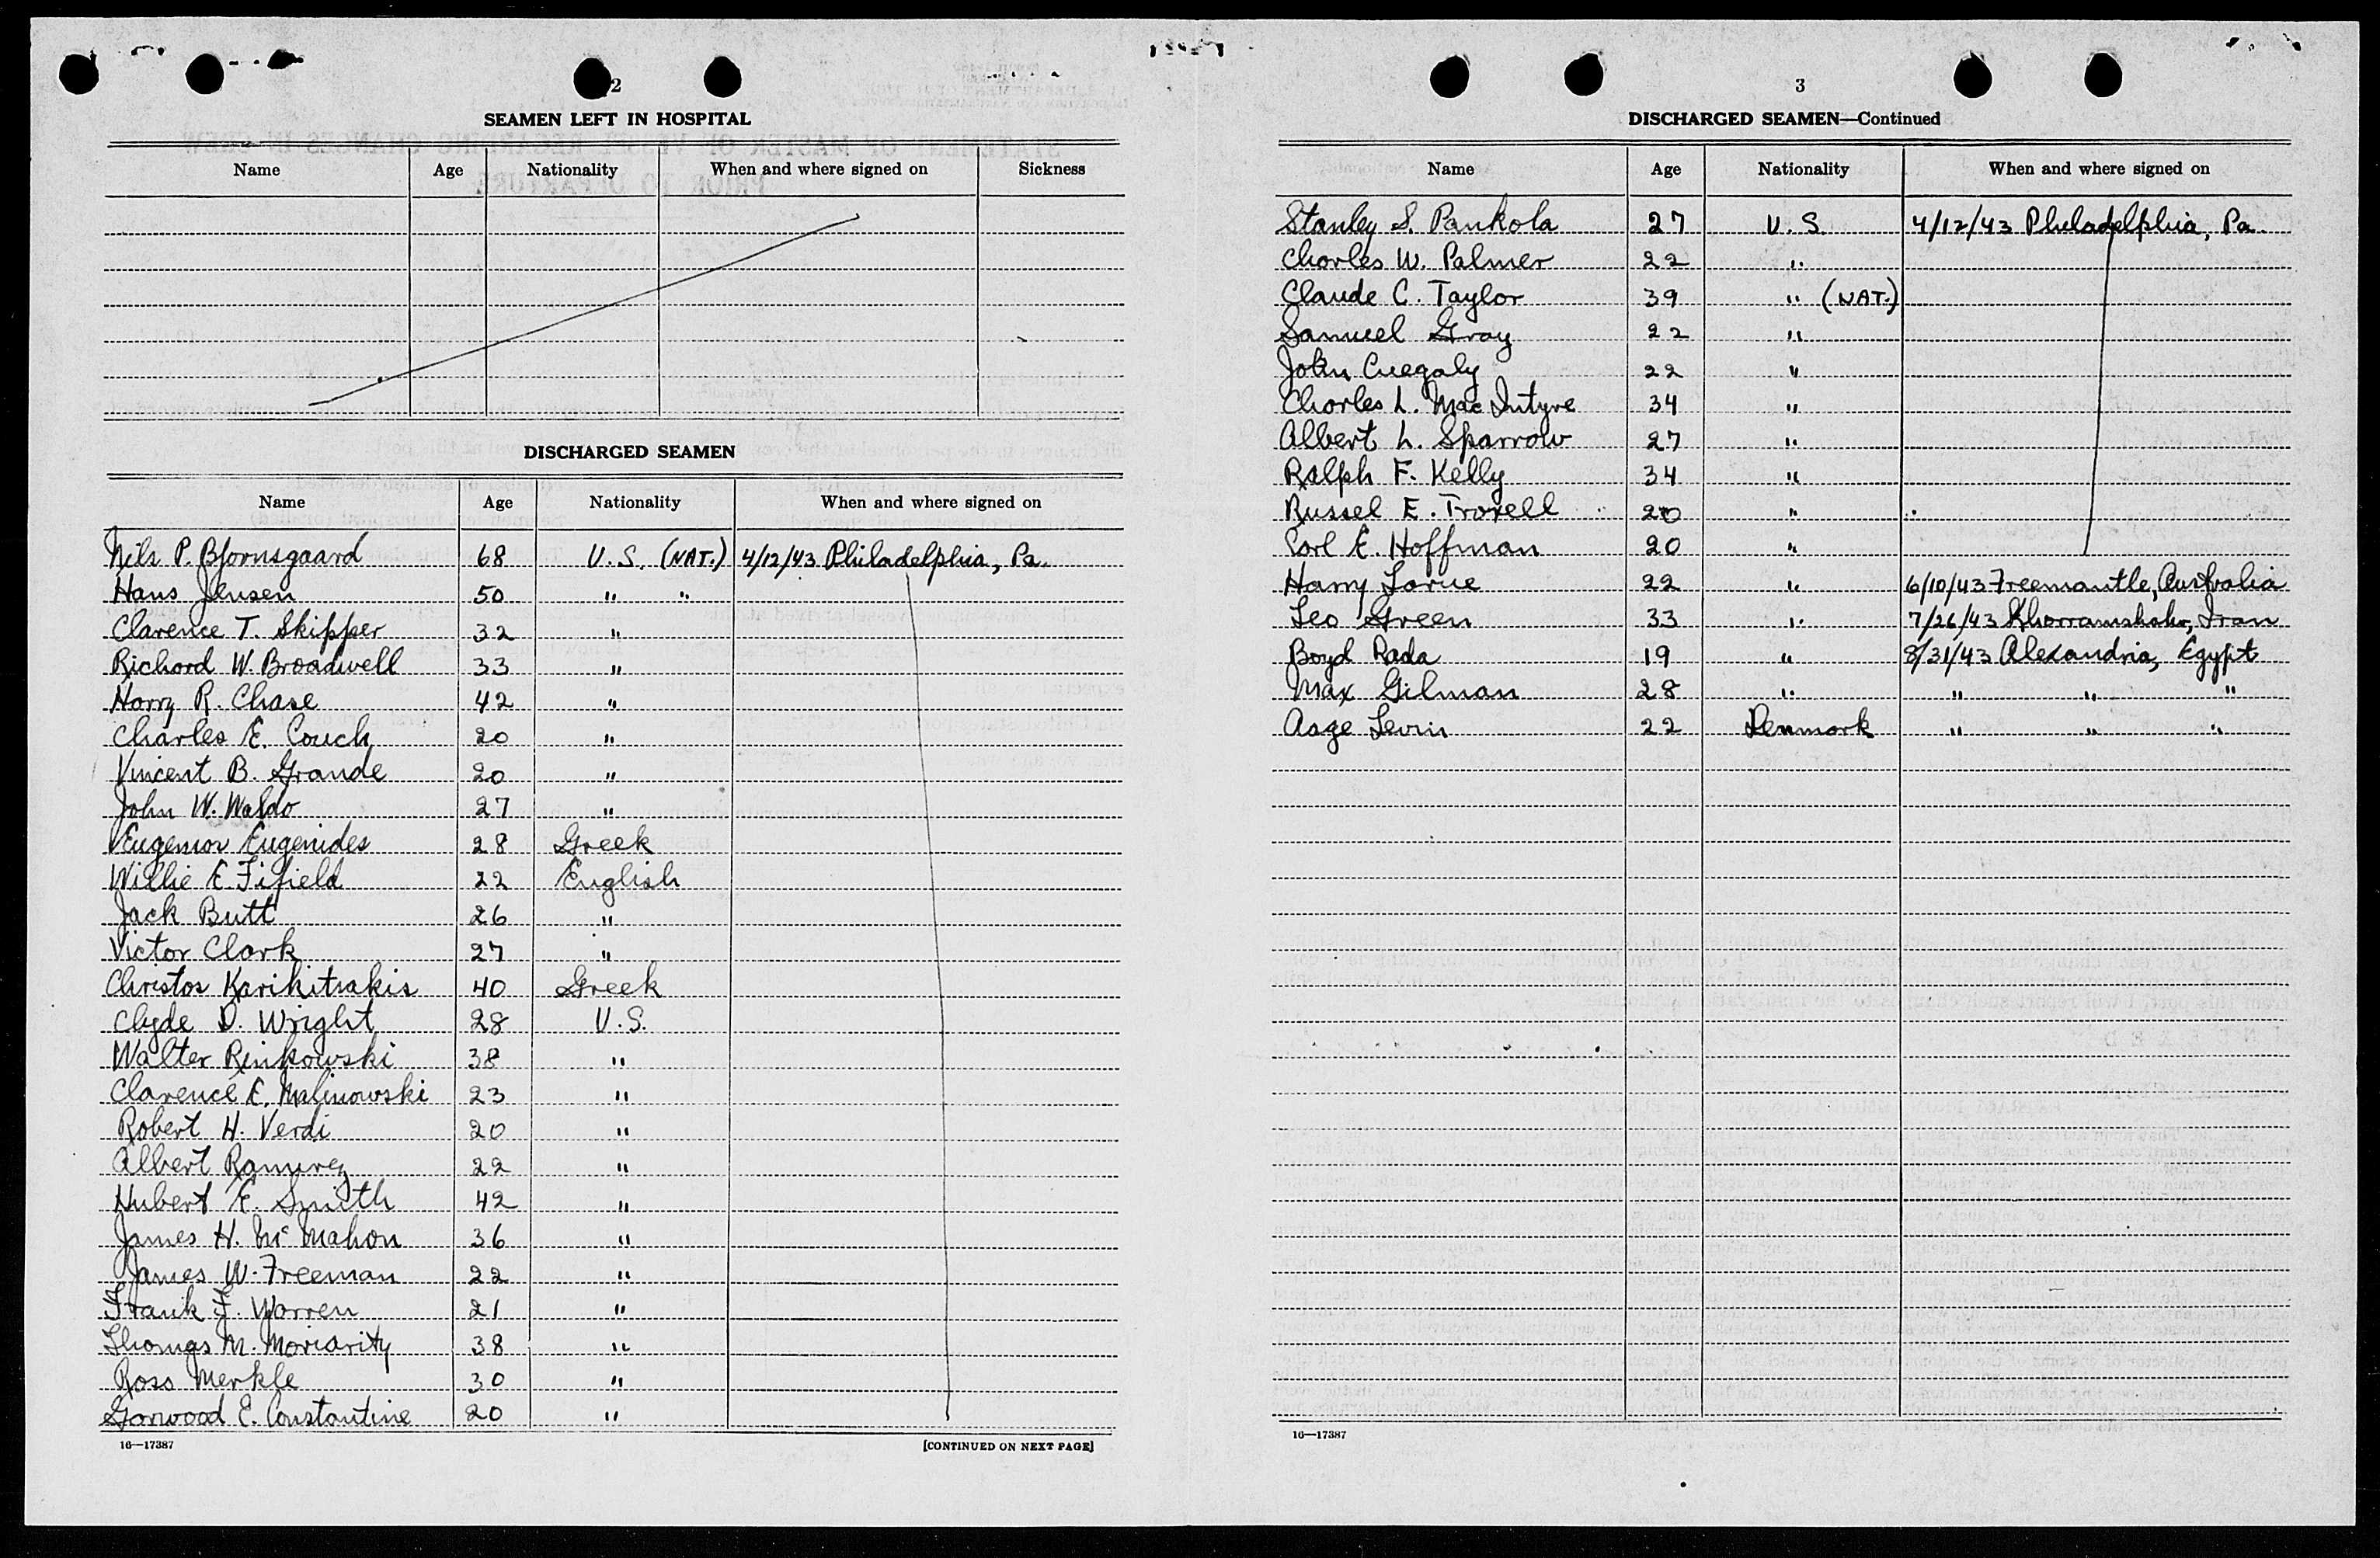 2
SEAMEN LEFT IN HOSPITAL
Name Age Nationality When and where signed on Sickness
DISCHARGED SEAMEN
Name Age Nationality When and where signed on
Nils P. Bjornsgaard 68 U.S. (NAT.) 4/12/43 Philadelphia, Pa.
Hans Jensen 50 " "
Clarence T. Skipper 32 "
Richard W. Broadwell 33 "
Harry R. Chase 42 "
Charles E. Couch 20 "
Vincent B. Grande 20 "
John W. Waldo 27 "
Eugenios Eugenides 28 Greek
Willie E. Fifield 22 English
Jack Butt 26 "
Victor Clark 27 "
Christos Karikitsakis 40 Greek
Clyde D. Wright 28 U.S.
Walter Renkowski 38 "
Clarence E. Malinowski 23 "
Robert H. Verdi 20 "
Albert Ramirez 22 "
Hubert E. Smith 42 "
James H. McMahon 36 "
James W. Freeman 22 "
Frank F. Warren 21 "
Thomas M. Moriarity 38 "
Ross Merkle 30 "
Garwood E. Constantine 20 "
16—17387 [CONTINUED ON NEXT PAGE]
3
DISCHARGED SEAMEN—Continued
Name Age Nationality When and where signed on
Stanley S. Pankola 27 U.S. 4/12/43 Philadelphia, Pa.
Charles W. Palmer 22 "
Claude C. Taylor 39 " (NAT.)
Samuel Gray 22 "
John Cuegaly 22 "
Charles L. MacIntyre 34 "
Albert L. Sparrow 27 "
Ralph F. Kelly 34 "
Russel E. Troxell 20 "
Carl E. Hoffman 20 "
Harry Larue 22 " 6/10/43 Freemantle, Australia
Leo Green 33 " 7/26/43 Khorramshahr, Iran
Boyd Rada 19 " 8/31/43 Alexandria, Egypt
Max Gilman 28 " " " "
Aage Levin 22 Denmark " " "
16—17387